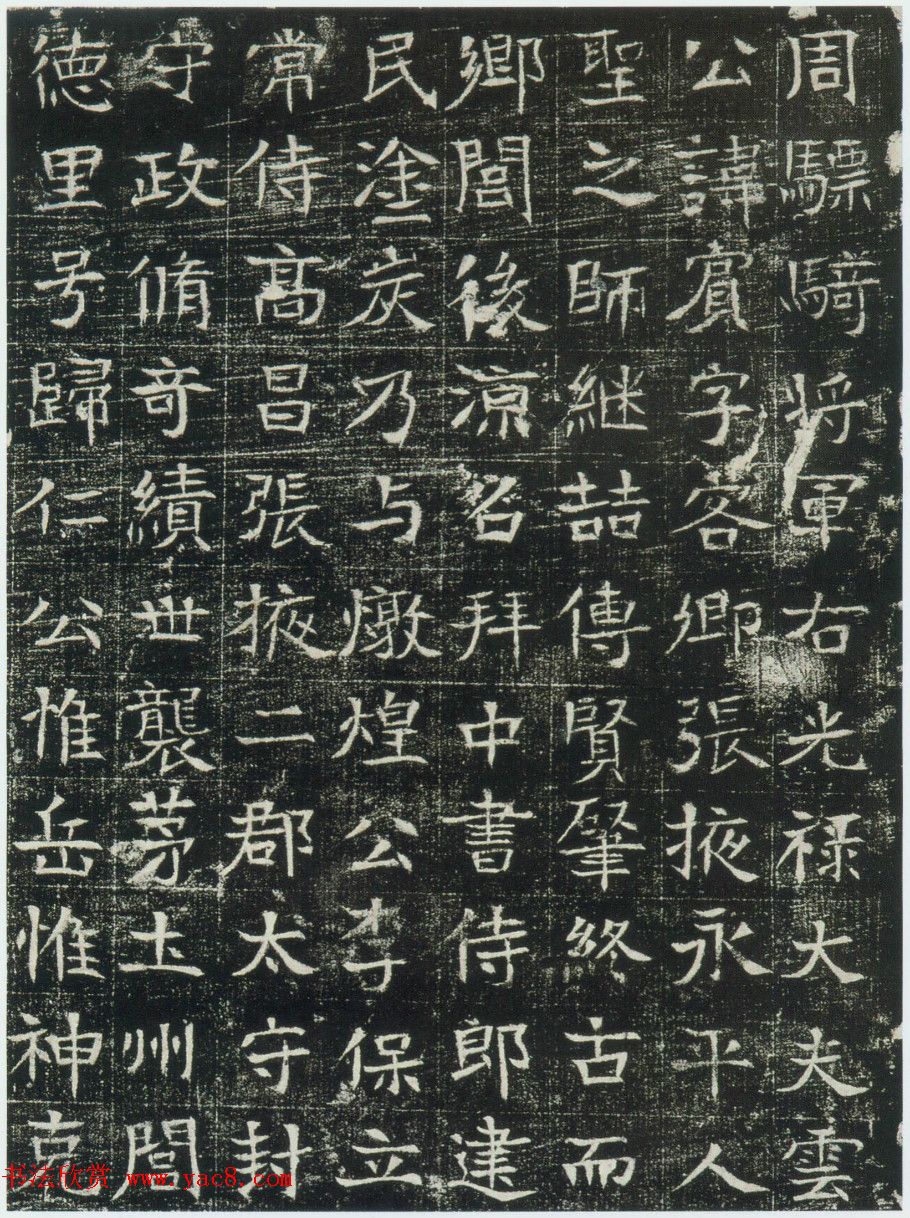 周驃騎将軍右光禄大夫雲
公諱賓字客卿張掖永平人
聖之師継喆傳賢肇終古而
鄉閭後涼召拜中書侍郎建
民塗炭乃与燉煌公李保立
常侍髙昌張掖二郡太守封
守政脩竒績世襲茅土州閭
徳里号歸仁公惟岳惟神克
书法欣赏 www.yac8.com